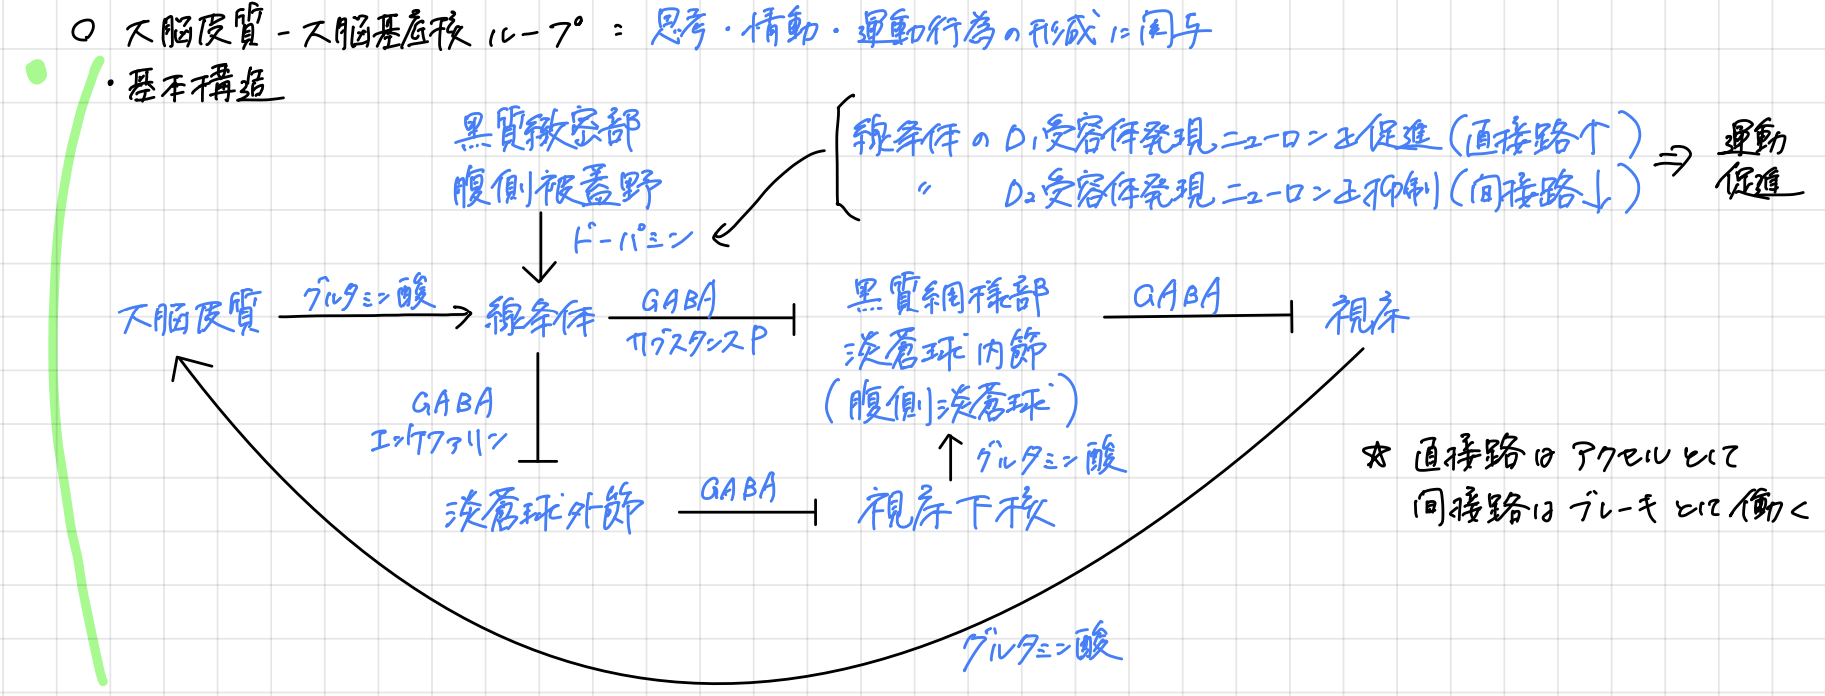 ○ 大脳皮質-大脳基底核ループ:思考・情動・運動行為の形成に関与
・基本構造
黒質緻密部
腹側被蓋野
線条体のD₁受容体発現ニューロンを促進(直接路↑)
〃 D₂受容体発現ニューロンを抑制(間接路↓)
⇒ 運動
促進
ドーパミン
大脳皮質
グルタミン酸
線条体
GABA
サブスタンスP
黒質網様部
淡蒼球内節
(腹側淡蒼球)
GABA
視床
GABA
エンケファリン
グルタミン酸
淡蒼球外節
GABA
視床下核
☆ 直接路はアクセルとして
間接路はブレーキとして働く
グルタミン酸